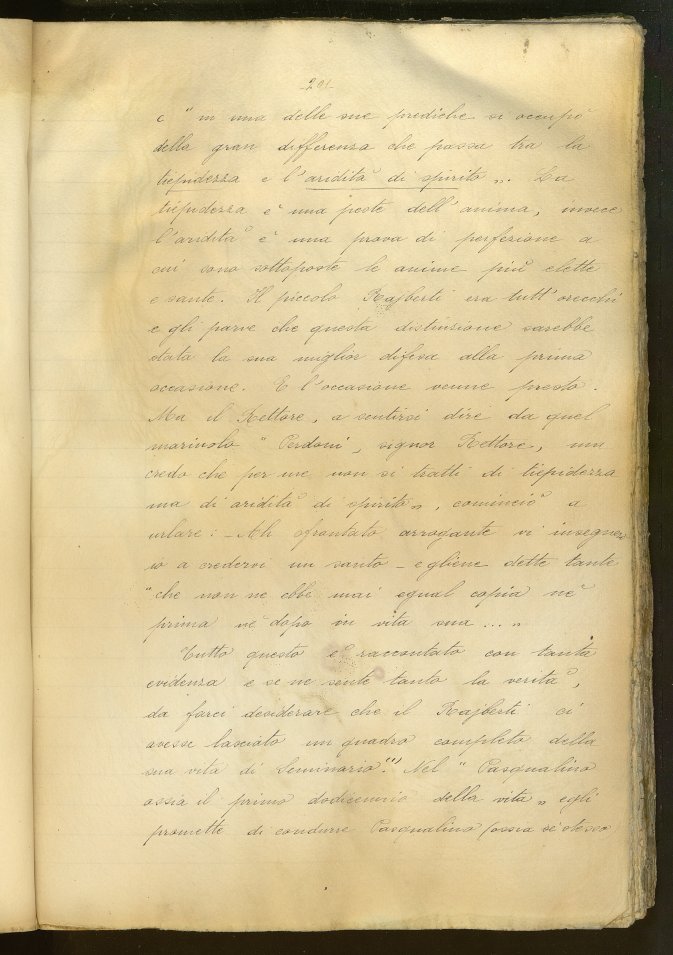 201
e " in una delle sue prediche si occupò
della gran differenza che passa tra la
tiepidezza e l'aridità di spirito „. La
tiepidezza è una peste dell'anima, invece
l'aridità è una prova di perfezione a
cui sono sottoposte le anime più elette
e sante. Il piccolo Rajberti era tutt'orecchi
e gli parve che questa distinzione sarebbe
stata la sua miglior difesa alla prima
occasione. E l'occasione venne presto.
Ma il Rettore, a sentirsi dire da quel
mariuolo " Perdoni, signor Rettore, mi
credo che per me non si tratti di tiepidezza
ma di aridità di spirito „, cominciò a
urlare: - Ah sfrontato, arrogante vi insegnerò
io a credervi un santo - e gliene dette tante
"che non ne ebbe mai egual copia nè
prima nè dopo in vita sua ... „
Tutto questo è raccontato con tanta
evidenza e se ne sente tanto la verità,
da farci desiderare che il Rajberti ci
avesse lasciato un quadro completo della
sua vita di Seminario.(1) Nel " Pasqualino
ossia il primo dodicennio della vita „ egli
promette di condurre Pasqualino (ossia sè stesso